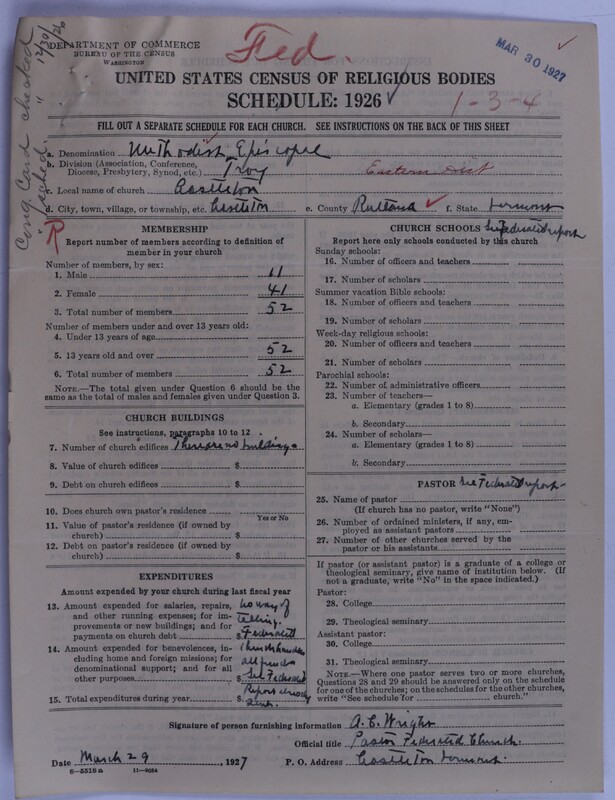 DEPARTMENT OF COMMERCE
BUREAU OF THE CENSUS
WASHINGTON
Fed.
MAR 30 1927
UNITED STATES CENSUS OF RELIGIOUS BODIES
SCHEDULE: 1926
1-3-4
Cong Card checked 12/30/26
FILL OUT A SEPARATE SCHEDULE FOR EACH CHURCH. SEE INSTRUCTIONS ON THE BACK OF THIS SHEET
a. Denomination Methodist Episcopal
b. Division (Association, Conference,
Diocese, Presbytery, Synod, etc.) Troy Eastern Dist
c. Local name of church Castleton
d. City, town, village, or township, etc. Castleton e. County Rutland f. State Vermont
R
MEMBERSHIP
Report number of members according to definition of
member in your church
Number of members, by sex:
1. Male 11
2. Female 41
3. Total number of members 52
Number of members under and over 13 years old:
4. Under 13 years of age
5. 13 years old and over 52
6. Total number of members 52
NOTE.—The total given under Question 6 should be
the same as the total of males and females given under Question 3.
CHURCH BUILDINGS
See instructions, paragraphs 10 to 12
7. Number of church edifices There are no buildings
8. Value of church edifices $
9. Debt on church edifices $
10. Does church own pastor's residence
Yes or No
11. Value of pastor's residence (if owned by
church) $
12. Debt on pastor's residence (if owned by
church) $
EXPENDITURES
Amount expended by your church during last fiscal year
13. Amount expended for salaries, repairs,
and other running expenses; for im-
provements or new buildings; and for
payments on church debt $
no way of
telling.
Federated
14. Amount expended for benevolences, in-
cluding home and foreign missions; for
denominational support; and for all
other purposes $
Church handles
all funds
See Federated
15. Total expenditures during year $
Report
CHURCH SCHOOLS See Federated report
Report here only schools conducted by this church
Sunday schools:
16. Number of officers and teachers
17. Number of scholars
Summer vacation Bible schools:
18. Number of officers and teachers
19. Number of scholars
Week-day religious schools:
20. Number of officers and teachers
21. Number of scholars
Parochial schools:
22. Number of administrative officers
23. Number of teachers—
a. Elementary (grades 1 to 8)
b. Secondary
24. Number of scholars—
a. Elementary (grades 1 to 8)
b. Secondary
PASTOR See Federated report
25. Name of pastor
(If church has no pastor, write "None")
26. Number of ordained ministers, if any, em-
ployed as assistant pastors
27. Number of other churches served by the
pastor or his assistants
If pastor (or assistant pastor) is a graduate of a college or
theological seminary, give name of institution below. (If
not a graduate, write "No" in the space indicated.)
Pastor:
28. College
29. Theological seminary
Assistant pastor:
30. College
31. Theological seminary
NOTE.—Where one pastor serves two or more churches,
Questions 28 and 29 should be answered only on the schedule
for one of the churches; on the schedules for the other churches,
write "See schedule for church."
Signature of person furnishing information A. C. Wright
Official title Pastor Federated Church.
Date March 29, 1927 P. O. Address Castleton Vermont.
8—5518 a 11—9084